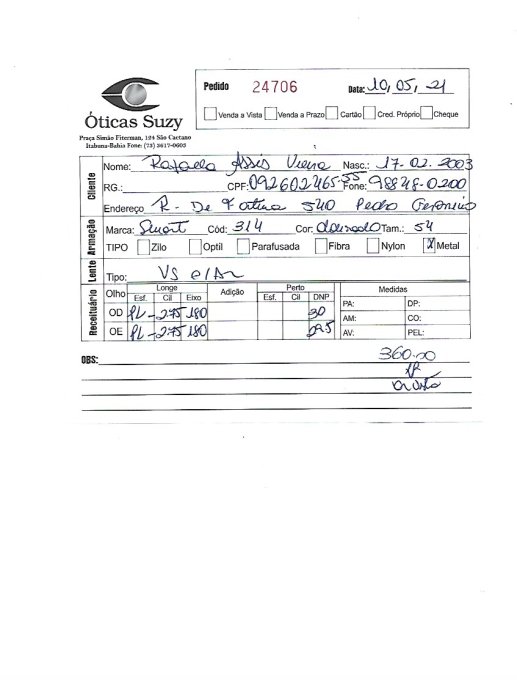 Pedido 24706 Data: 10, 05, 21
Venda a Vista Venda a Prazo Cartão Cred. Próprio Cheque
Óticas Suzy
Praça Simão Fiterman, 124 São Caetano
Itabuna-Bahia Fone: (73) 3617-0603
Cliente
Nome: Rafaela Assis Viena Nasc.: 17-02-2003
RG.: CPF: 092602465-55 Fone: 98848-0200
Endereço R. De Fatima 540 Pedro Geronimo
Armação
Marca: Smart Cód: 314 Cor: dourado Tam.: 54
TIPO Zilo Optil Parafusada Fibra Nylon X Metal
Lente
Tipo: VS c/AR
Receituário
Olho Longe Adição Perto Medidas
Esf. Cil Eixo Esf. Cil DNP PA: DP:
OD PL -275 180 30 AM: CO:
OE PL -275 180 29,5 AV: PEL:
OBS: 360.00